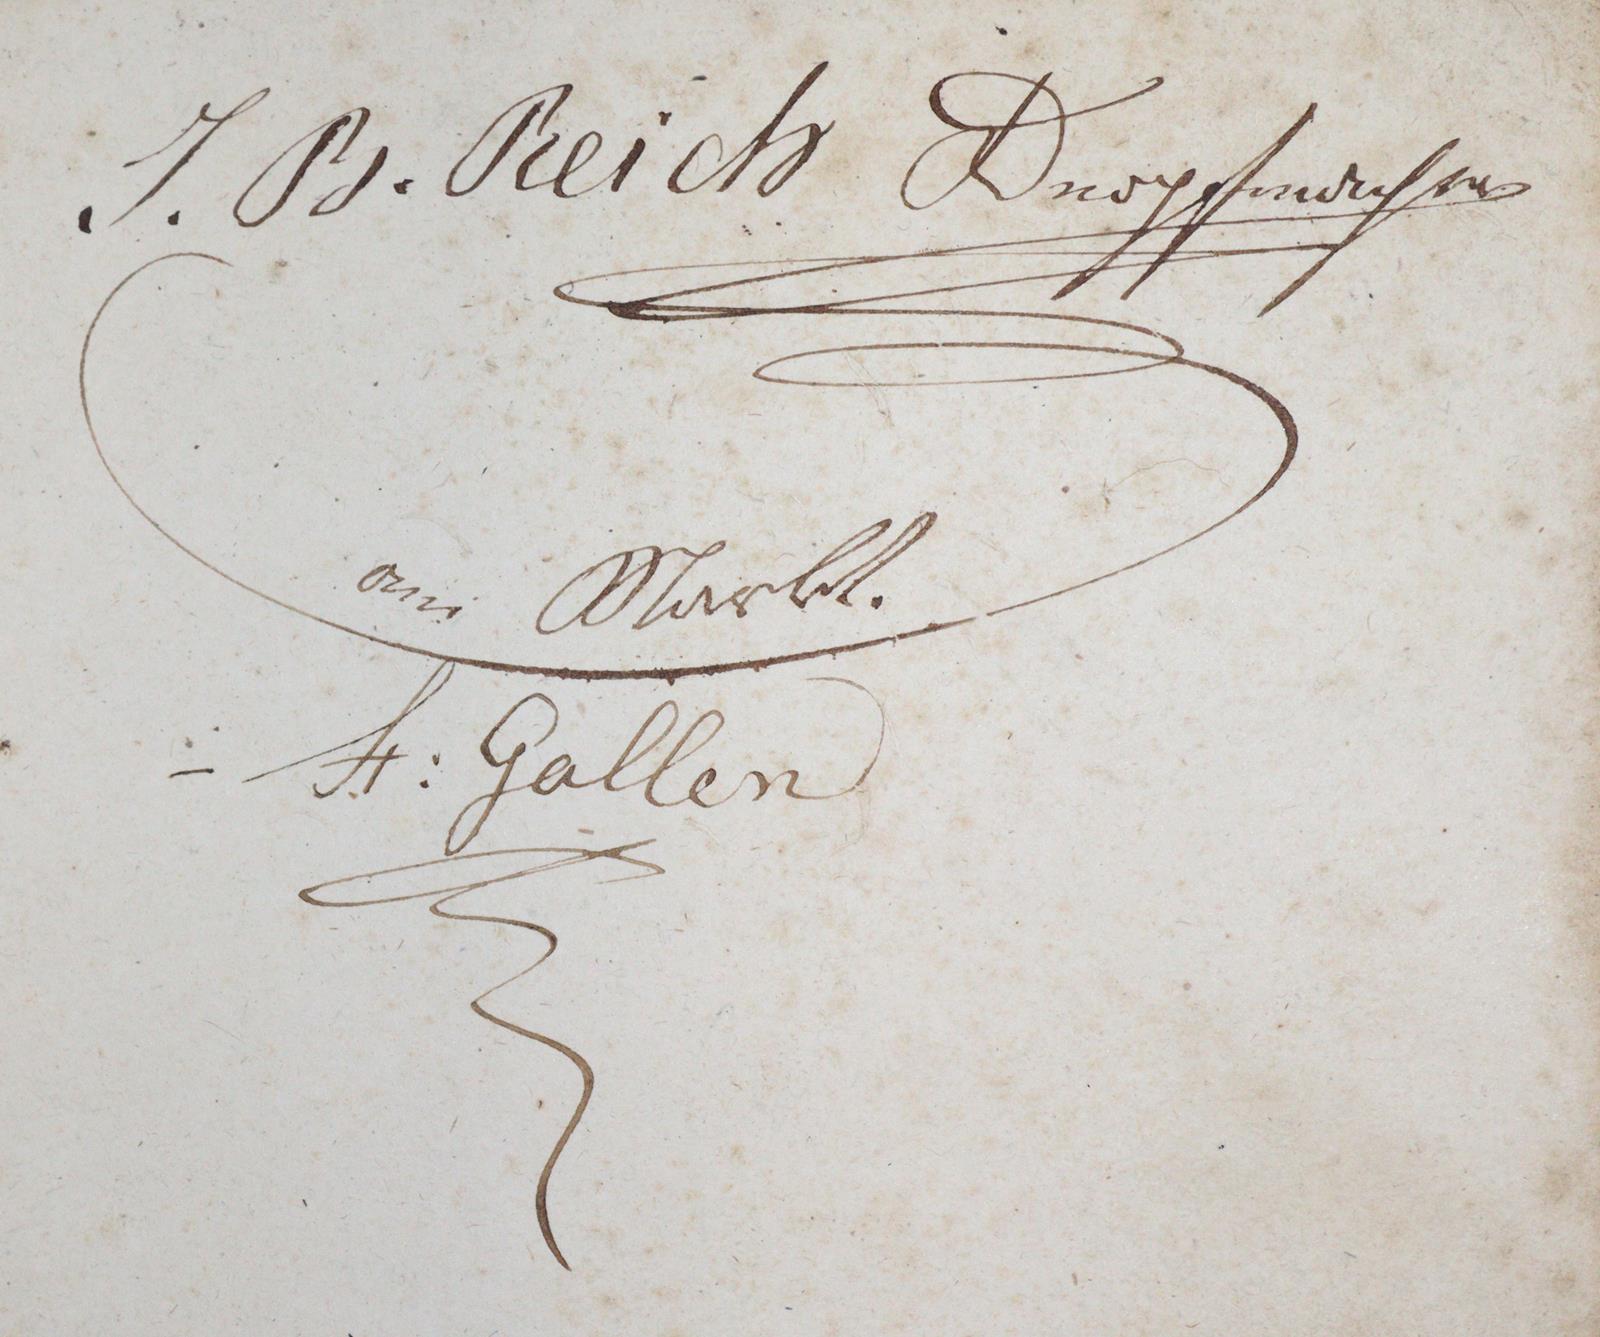 J. B. Reich Knopfmacher
am Markt.
St: Gallen